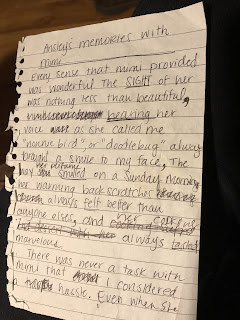 Ansley's memories with
mimi
Every sense that mimi provided
was wonderful. The SIGHT of her
was nothing less than beautiful,
hearing her
voice as she called me
"nunnie bird", or "doodlebug" always
brought a smile to my face, The
way her perfume smelled on a Sunday morning
her warming back scratches
always felt better than
anyone elses, and her cooking
always tasted
marvelous.
There was never a task with
mimi that I considered
a hassle. Even when she